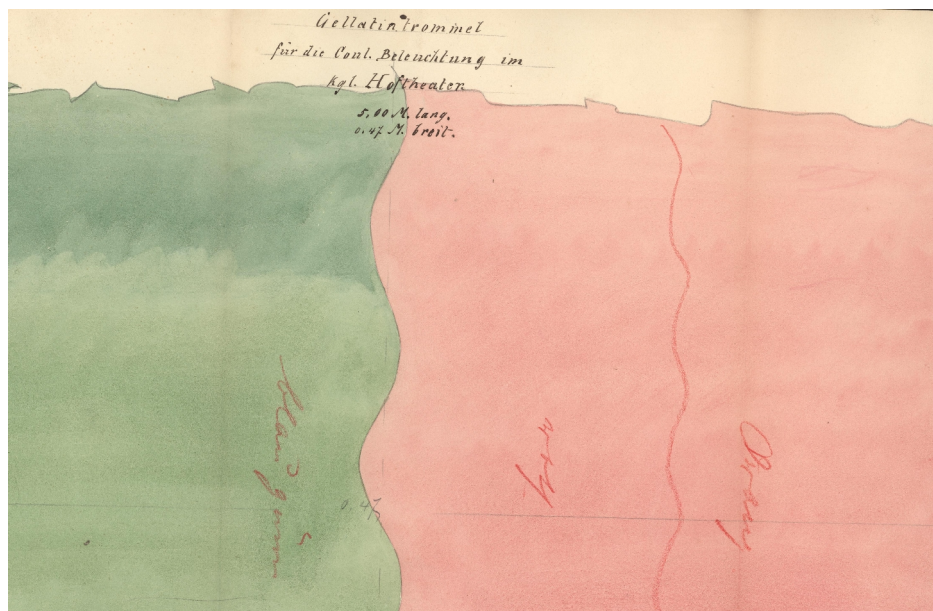 Gellatintrommel
für die Coul. Beleuchtung im
kgl. Hoftheater
5,00 M. lang.
0.47 M. breit.
blau grün
0.47
rot
Orang